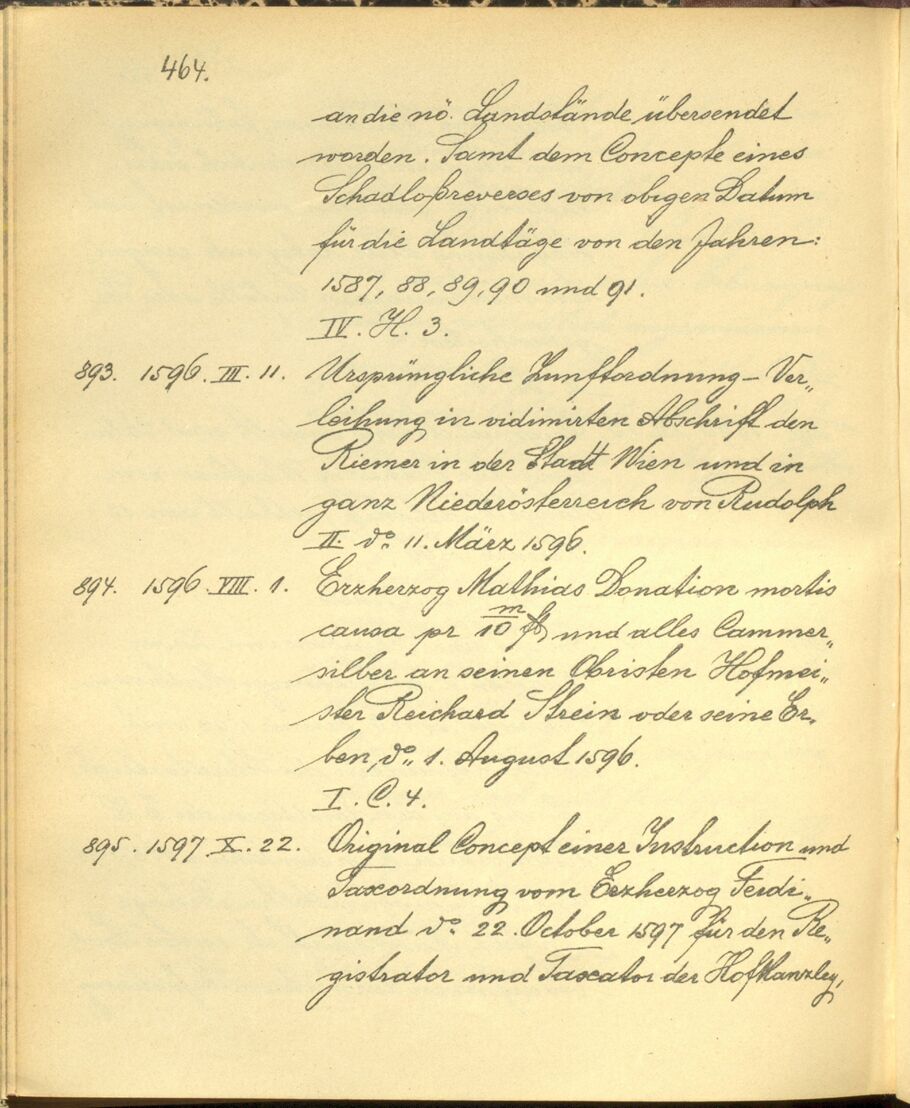 464.
an die nö. Landstände übersendet
worden. Samt dem Concepte eines
Schadloßreverses von obigen Datum
für die Landtäge von den Jahren:
1587, 88, 89, 90 und 91.
IV. H. 3.
893. 1596. III. 11. Ursprüngliche Zunftordnung - Ver„
leihung in vidimirten Abschrift den
Riemer in der Stadt Wien und in
ganz Niederösterreich von Rudolph
II. do 11. März 1596.
894. 1596. VIII. 1. Erzherzog Mathias Donation mortis
causa pr m/10 und alles Cammer„
silber an seinen Obristen Hofmei„
ster Reichard Strein oder seine Er„
ben, do„ 1. August 1596.
I. C. 4.
895. 1597. X. 22. Original Concept einer Instruction und
Taxordnung vom Erzherzog Ferdi„
nand do. 22. October 1597 für den Re„
gistrator und Taxator der Hofkanzley,